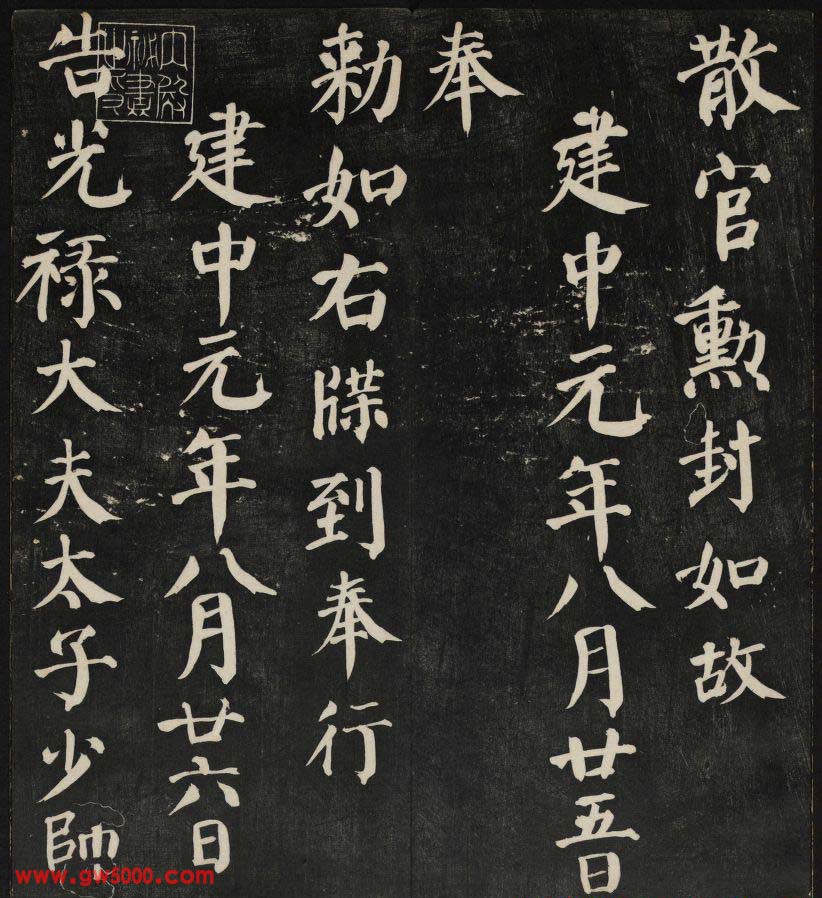 散官勲封如故
建中元年八月廿五日
奉
勑如右牒到奉行
建中元年八月廿六日
告光禄大夫太子少師
www.gw5000.com